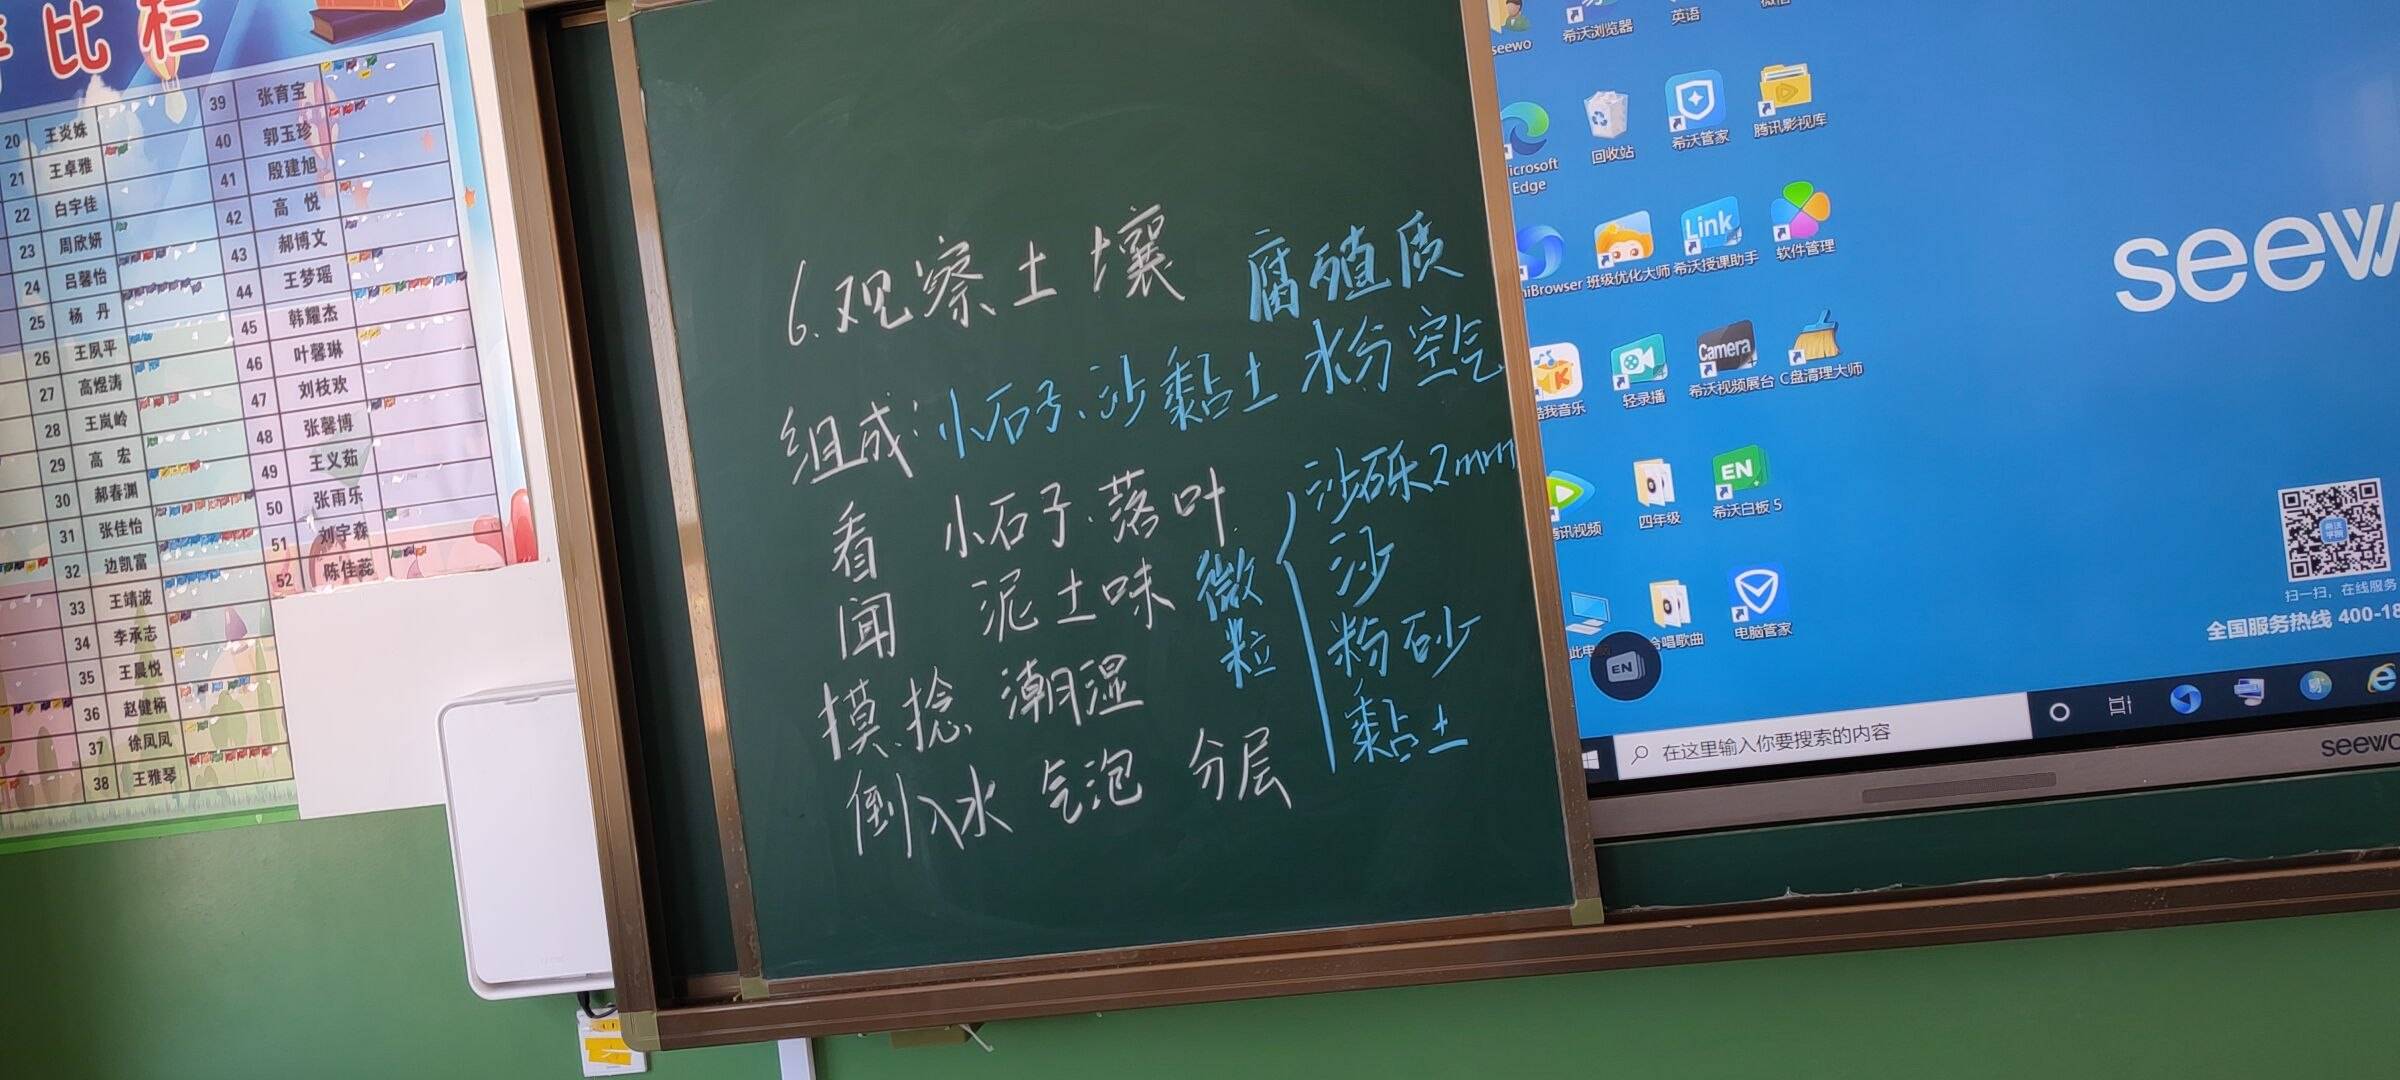 比栏
20 王炎姝
21 王卓雅
22 白宇佳
23 周欣妍
24 吕馨怡
25 杨 丹
26 王夙平
27 高煜涛
28 王岚岭
29 高 宏
30 郝春渊
31 张佳怡
32 边凯富
33 王靖波
34 李承志
35 王晨悦
36 赵健柄
37 徐凤凤
38 王雅琴
39 张育宝
40 郭玉珍
41 殷建旭
42 高 悦
43 郝博文
44 王梦瑶
45 韩耀杰
46 叶馨琳
47 刘枝欢
48 张馨博
49 王义茹
50 张雨乐
51 刘宇森
52 陈佳蕊
6.观察土壤 腐殖质
组成:小石子、沙黏土 水分 空气
看 小石子、落叶
闻 泥土味
摸、捻 潮湿
倒入水 气泡 分层
微粒
沙砾2mm
沙
粉砂
黏土
seewo
希沃浏览器
英语
Edge
回收站
希沃管家
腾讯影视库
班级优化大师
Link
希沃授课助手
软件管理
轻录播
Camera
希沃视频展台
C盘清理大师
四年级
EN
希沃白板 5
电脑管家
EN
seew
希沃学院
扫一扫，在线服务
全国服务热线 400-18
在这里输入你要搜索的内容
seewo